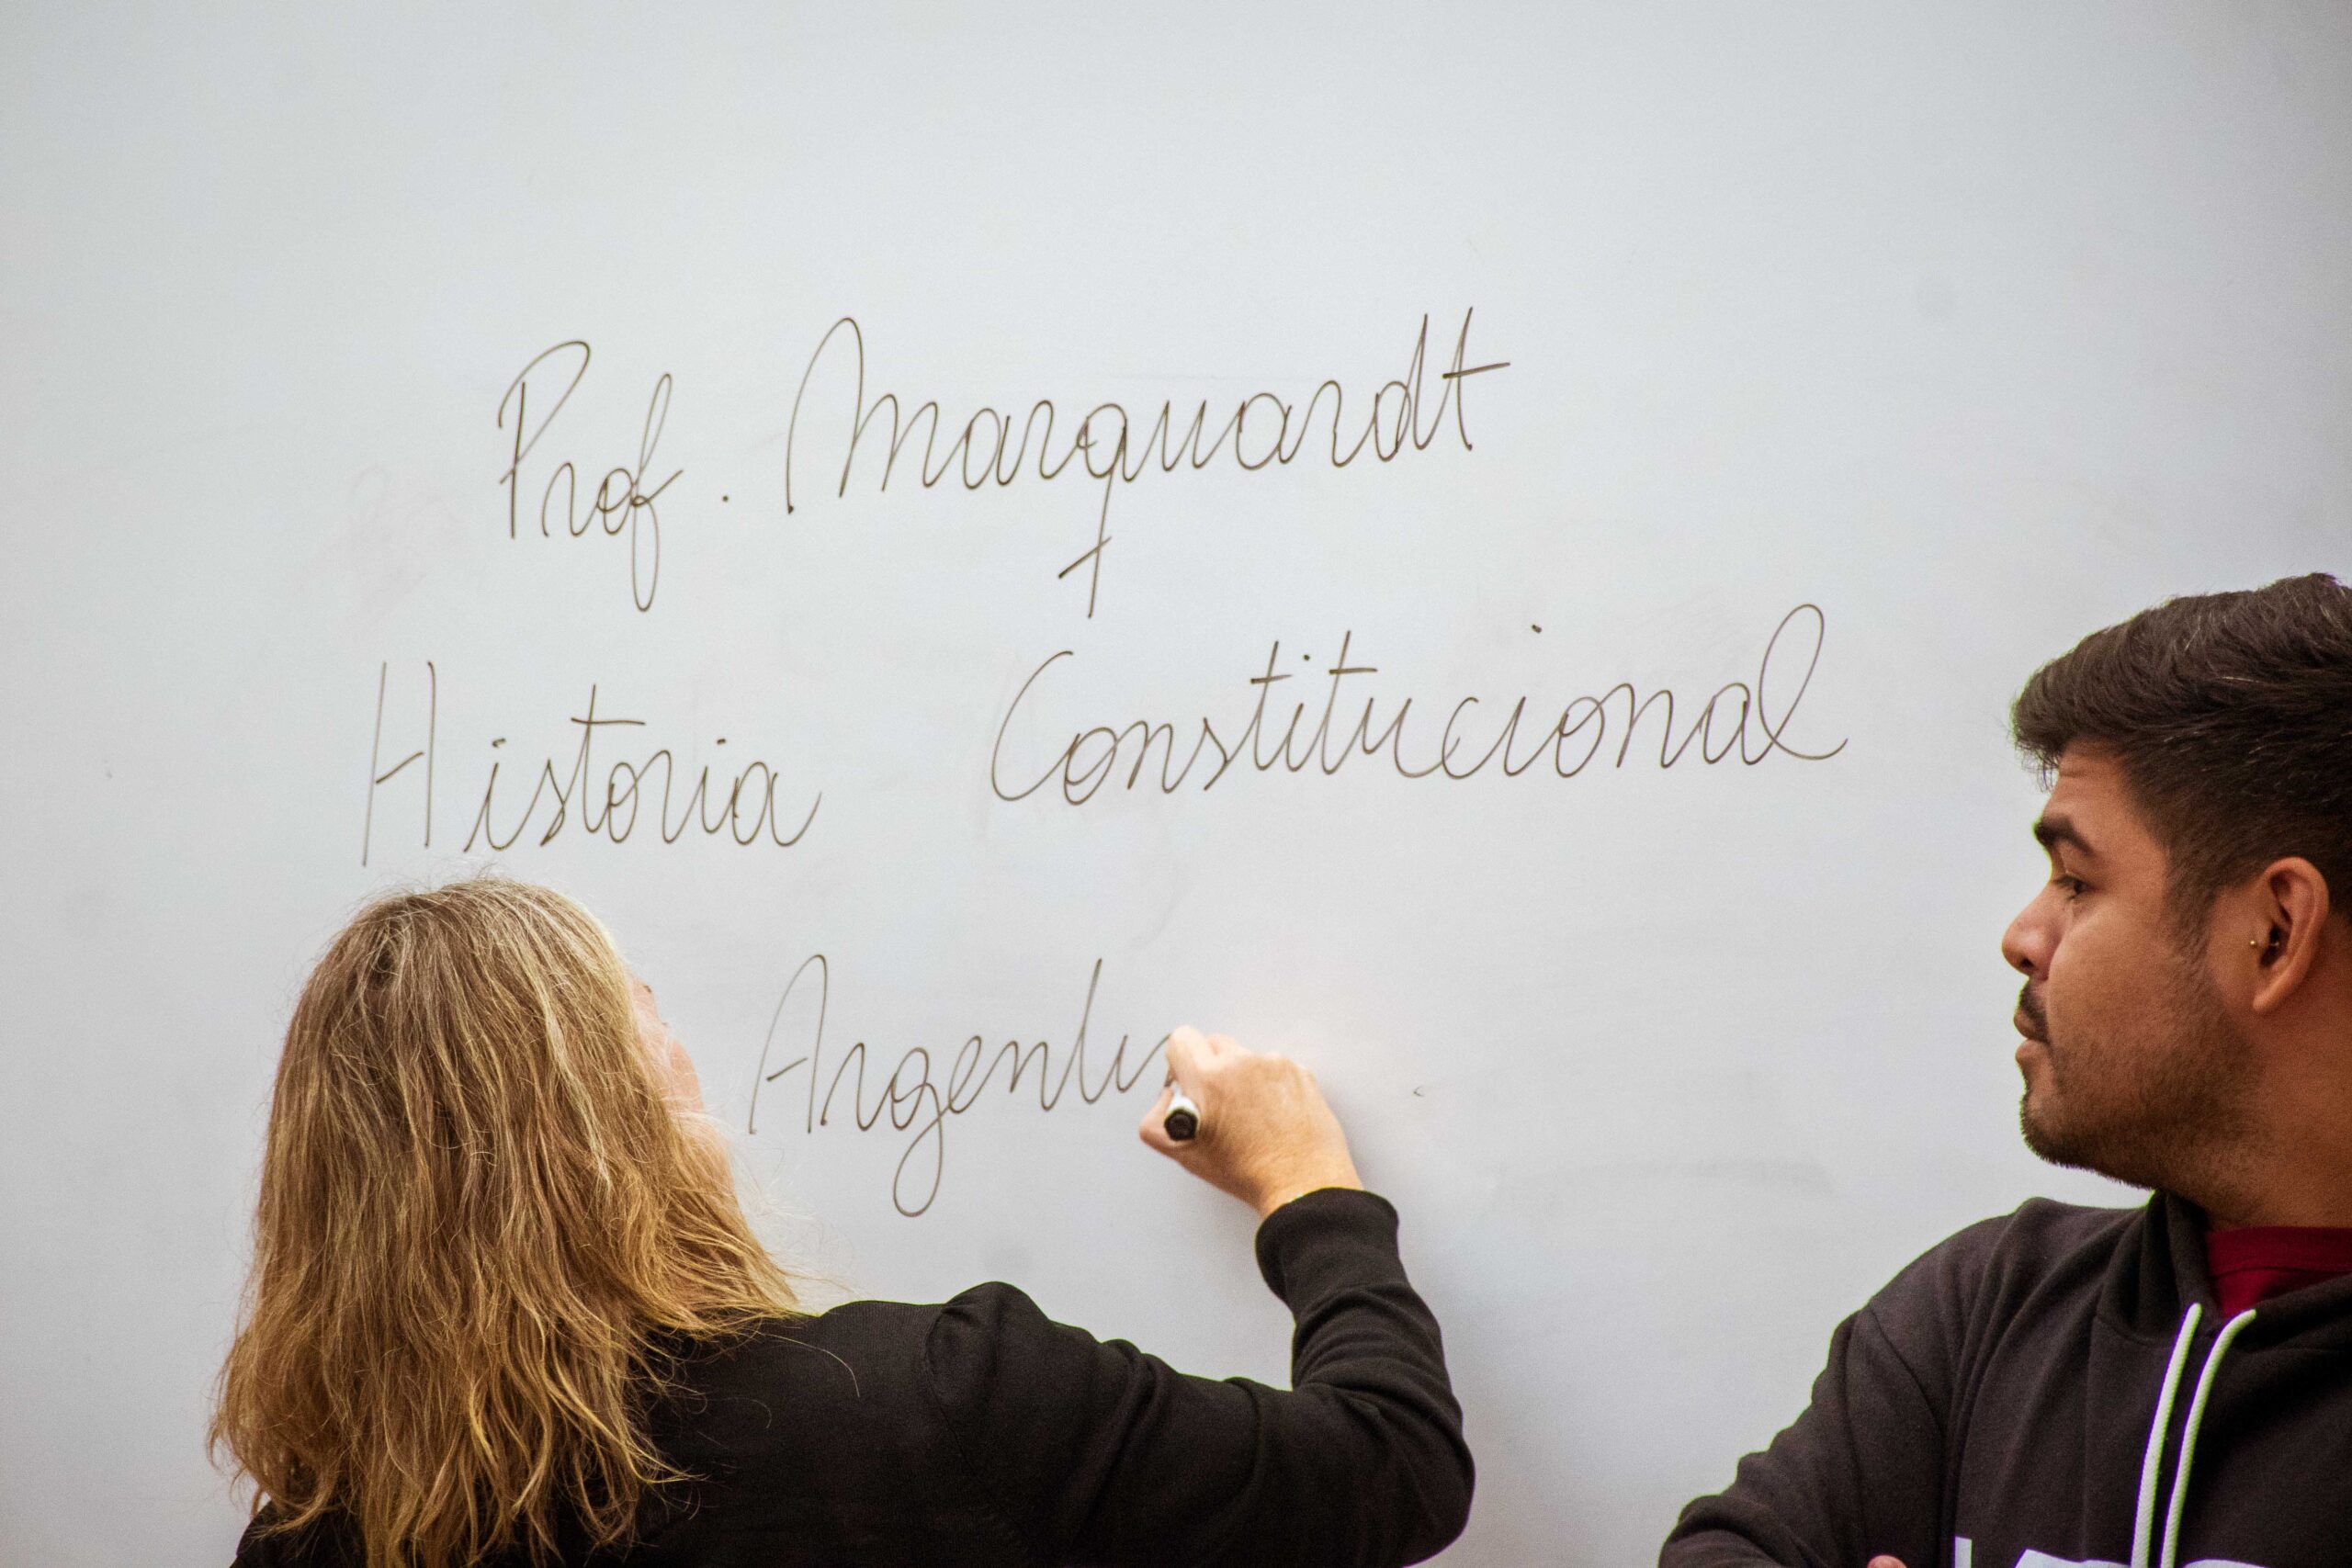 Prof. Marquardt
Historia Constitucional
Argenti